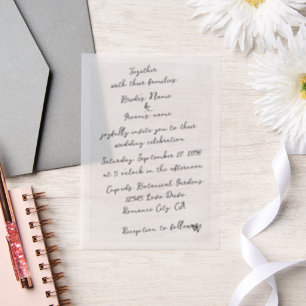 Together
with their families
Brides Name
&
Grooms name
joyfully invite you to their
wedding celebration
Saturday, September 27, 2036
at 5 o'clock in the afternoon
Cupids Botanical Gardens
12345 Love Drive
Romance City, CA
Reception to follow